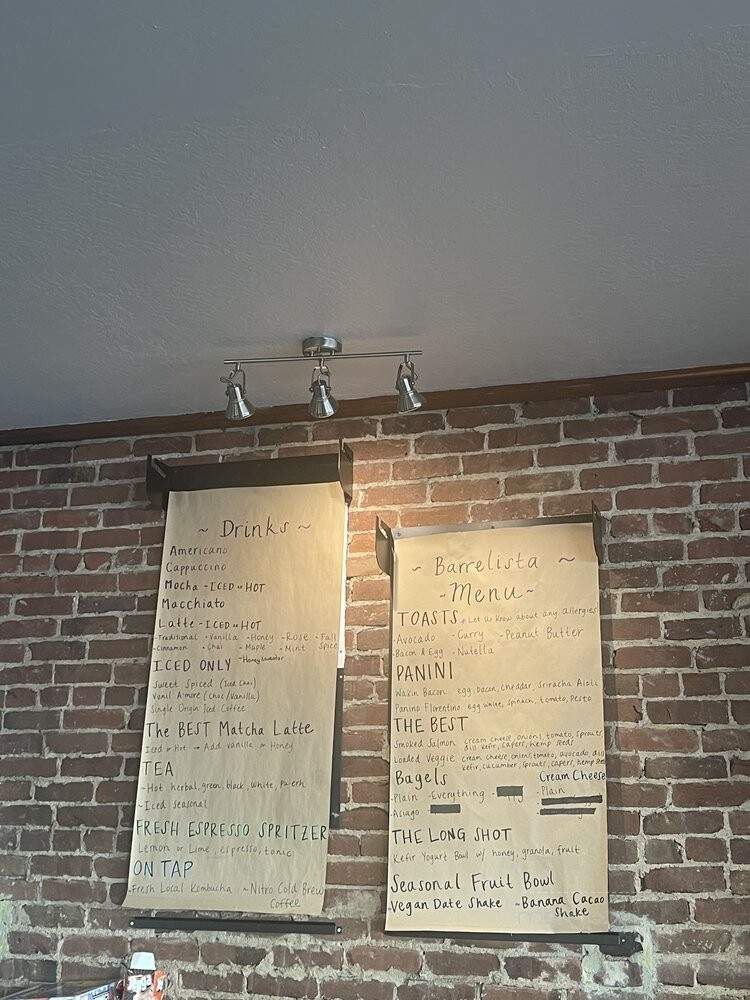 ~ Drinks ~
Americano
Cappuccino
Mocha - ICED or HOT
Macchiato
Latte - ICED or HOT
-Traditional -Vanilla -Honey -Rose -Fall
-Cinnamon -Chai -Maple -Mint Spice
-Honey Lavender
ICED ONLY
Sweet Spiced (Iced Chai)
Vanil Amore (Choc/Vanilla)
Single Origin Iced Coffee
The BEST Matcha Latte
Iced or Hot → Add vanilla or Honey
TEA
~Hot herbal, green, black, white, pu-erh
~Iced seasonal
FRESH ESPRESSO SPRITZER
Lemon or Lime, espresso, tonic
ON TAP
~Fresh Local Kombucha ~Nitro Cold Brew
Coffee
~ Barrelista ~
~Menu~
TOASTS * Let us know about any allergies
-Avocado -Curry -Peanut Butter
-Bacon & Egg -Nutella
PANINI
Wakin Bacon egg, bacon, cheddar, Sriracha Aioli
Panino Florentino egg white, spinach, tomato, pesto
THE BEST
Smoked Salmon cream cheese, onions, tomato, sprouts
dill kefir, capers, hemp seeds
Loaded Veggie cream cheese, onions, tomato, avocado, dill
kefir, cucumber, sprouts, capers, hemp seeds
Bagels
-Plain -Everything
-Asiago
Cream Cheese
-Plain
THE LONG SHOT
Kefir Yogurt Bowl w/ honey, granola, fruit
Seasonal Fruit Bowl
-Vegan Date Shake -Banana Cacao
Shake